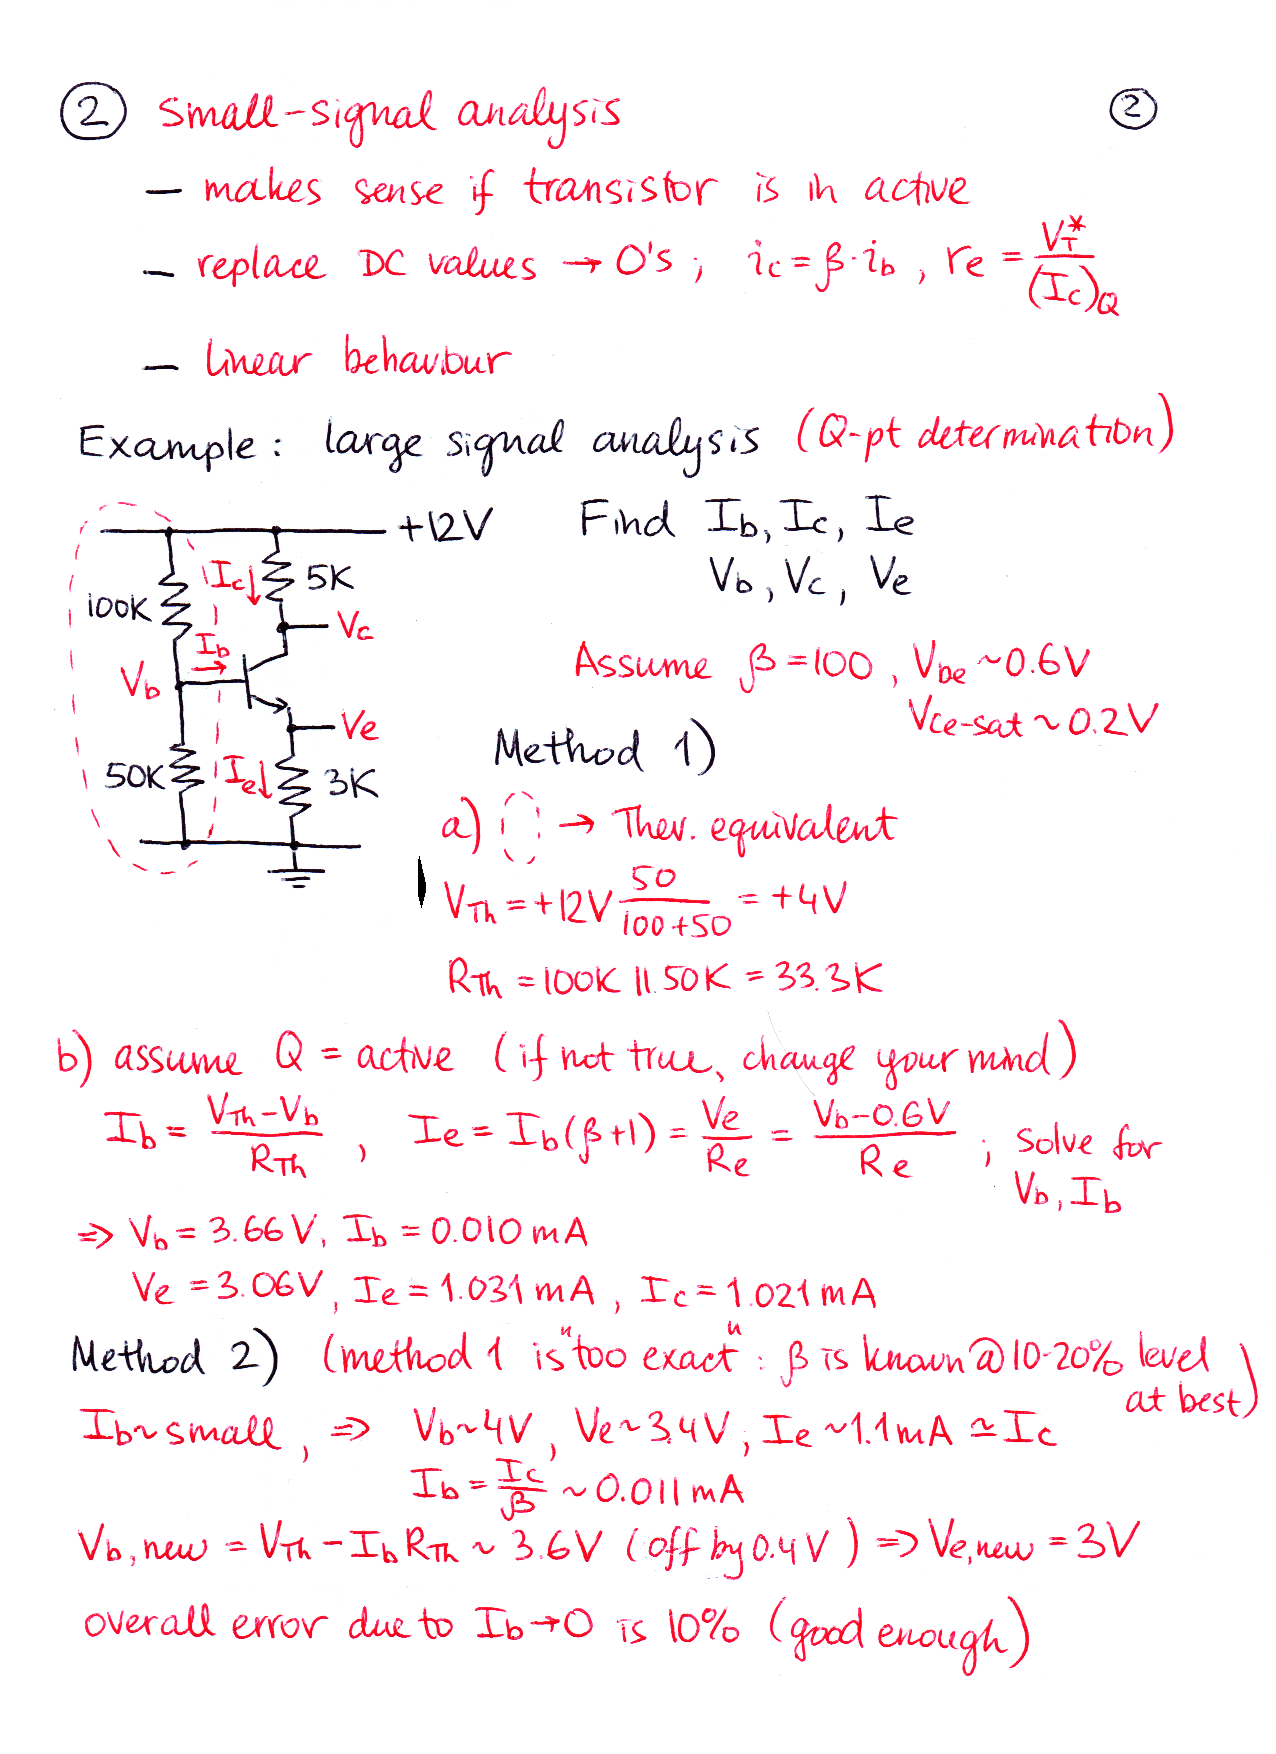 ② Small-signal analysis ②
— makes sense if transistor is in active
— replace DC values → 0's ; ic = β·ib , re = VT*/(Ic)Q
— linear behaviour
Example : large signal analysis (Q-pt determination)
+12V
Find Ib, Ic, Ie
Vb, Vc, Ve
Ic 5K
100K
Vc
Ib
Vb
Assume β=100, Vbe ~0.6V
Vce-sat ~ 0.2V
Ve
Method 1)
50K Ie 3K
a) → Thev. equivalent
VTh = +12V 50/(100+50) = +4V
RTh = 100K || 50K = 33.3K
b) assume Q = active (if not true, change your mind)
Ib = (VTh-Vb)/RTh , Ie = Ib(β+1) = Ve/Re = (Vb-0.6V)/Re ; solve for
Vb, Ib
=> Vb = 3.66V, Ib = 0.010 mA
Ve = 3.06V, Ie = 1.031 mA, Ic = 1.021 mA
Method 2) (method 1 is "too exact" : β is known @ 10-20% level
at best)
Ib ~ small, => Vb ~ 4V, Ve ~ 3.4V, Ie ~ 1.1mA ≃ Ic
Ib = Ic/β ~ 0.011 mA
Vb,new = VTh - Ib RTh ~ 3.6V (off by 0.4V) => Ve,new = 3V
overall error due to Ib → 0 is 10% (good enough)